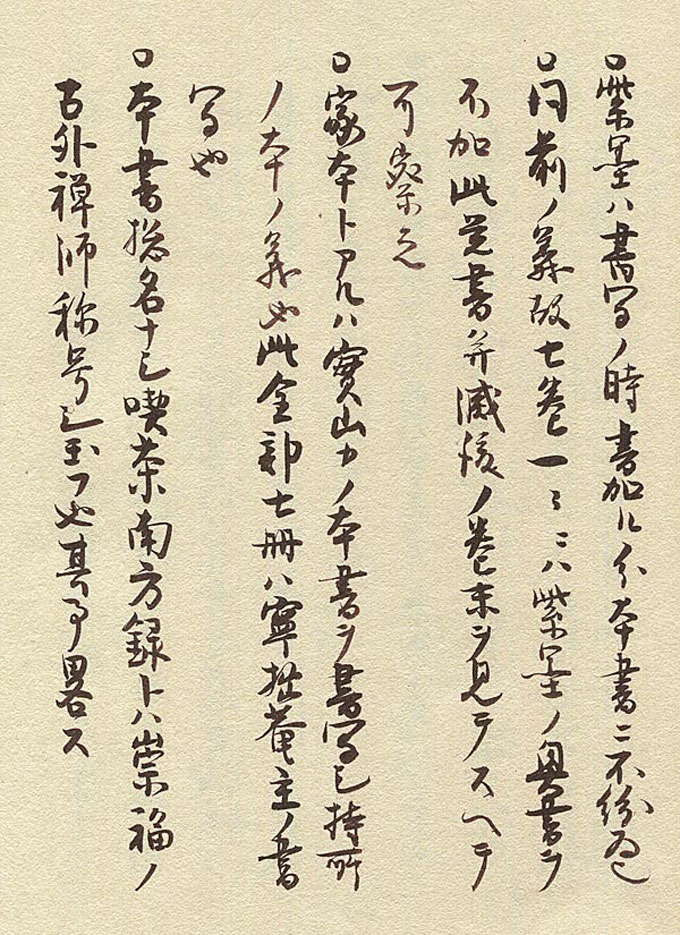 ○紫墨ハ書写ノ時書加ルト分本書ニ不紛為也
○同前ノ義故七巻一々ニハ紫墨ノ奥書ヲ
不加此覚書并滅後ノ巻末ヲ見テスヘテ
可察之
○家本トアルハ實山カノ本書ヲ書写シ持所
ノ本ノ義也此全部七冊ハ寧拙菴主ノ書
写也
○本書惣名ナシ喫茶南方録トハ崇福ノ
古外禅師称号シ玉フ也其事畧ス